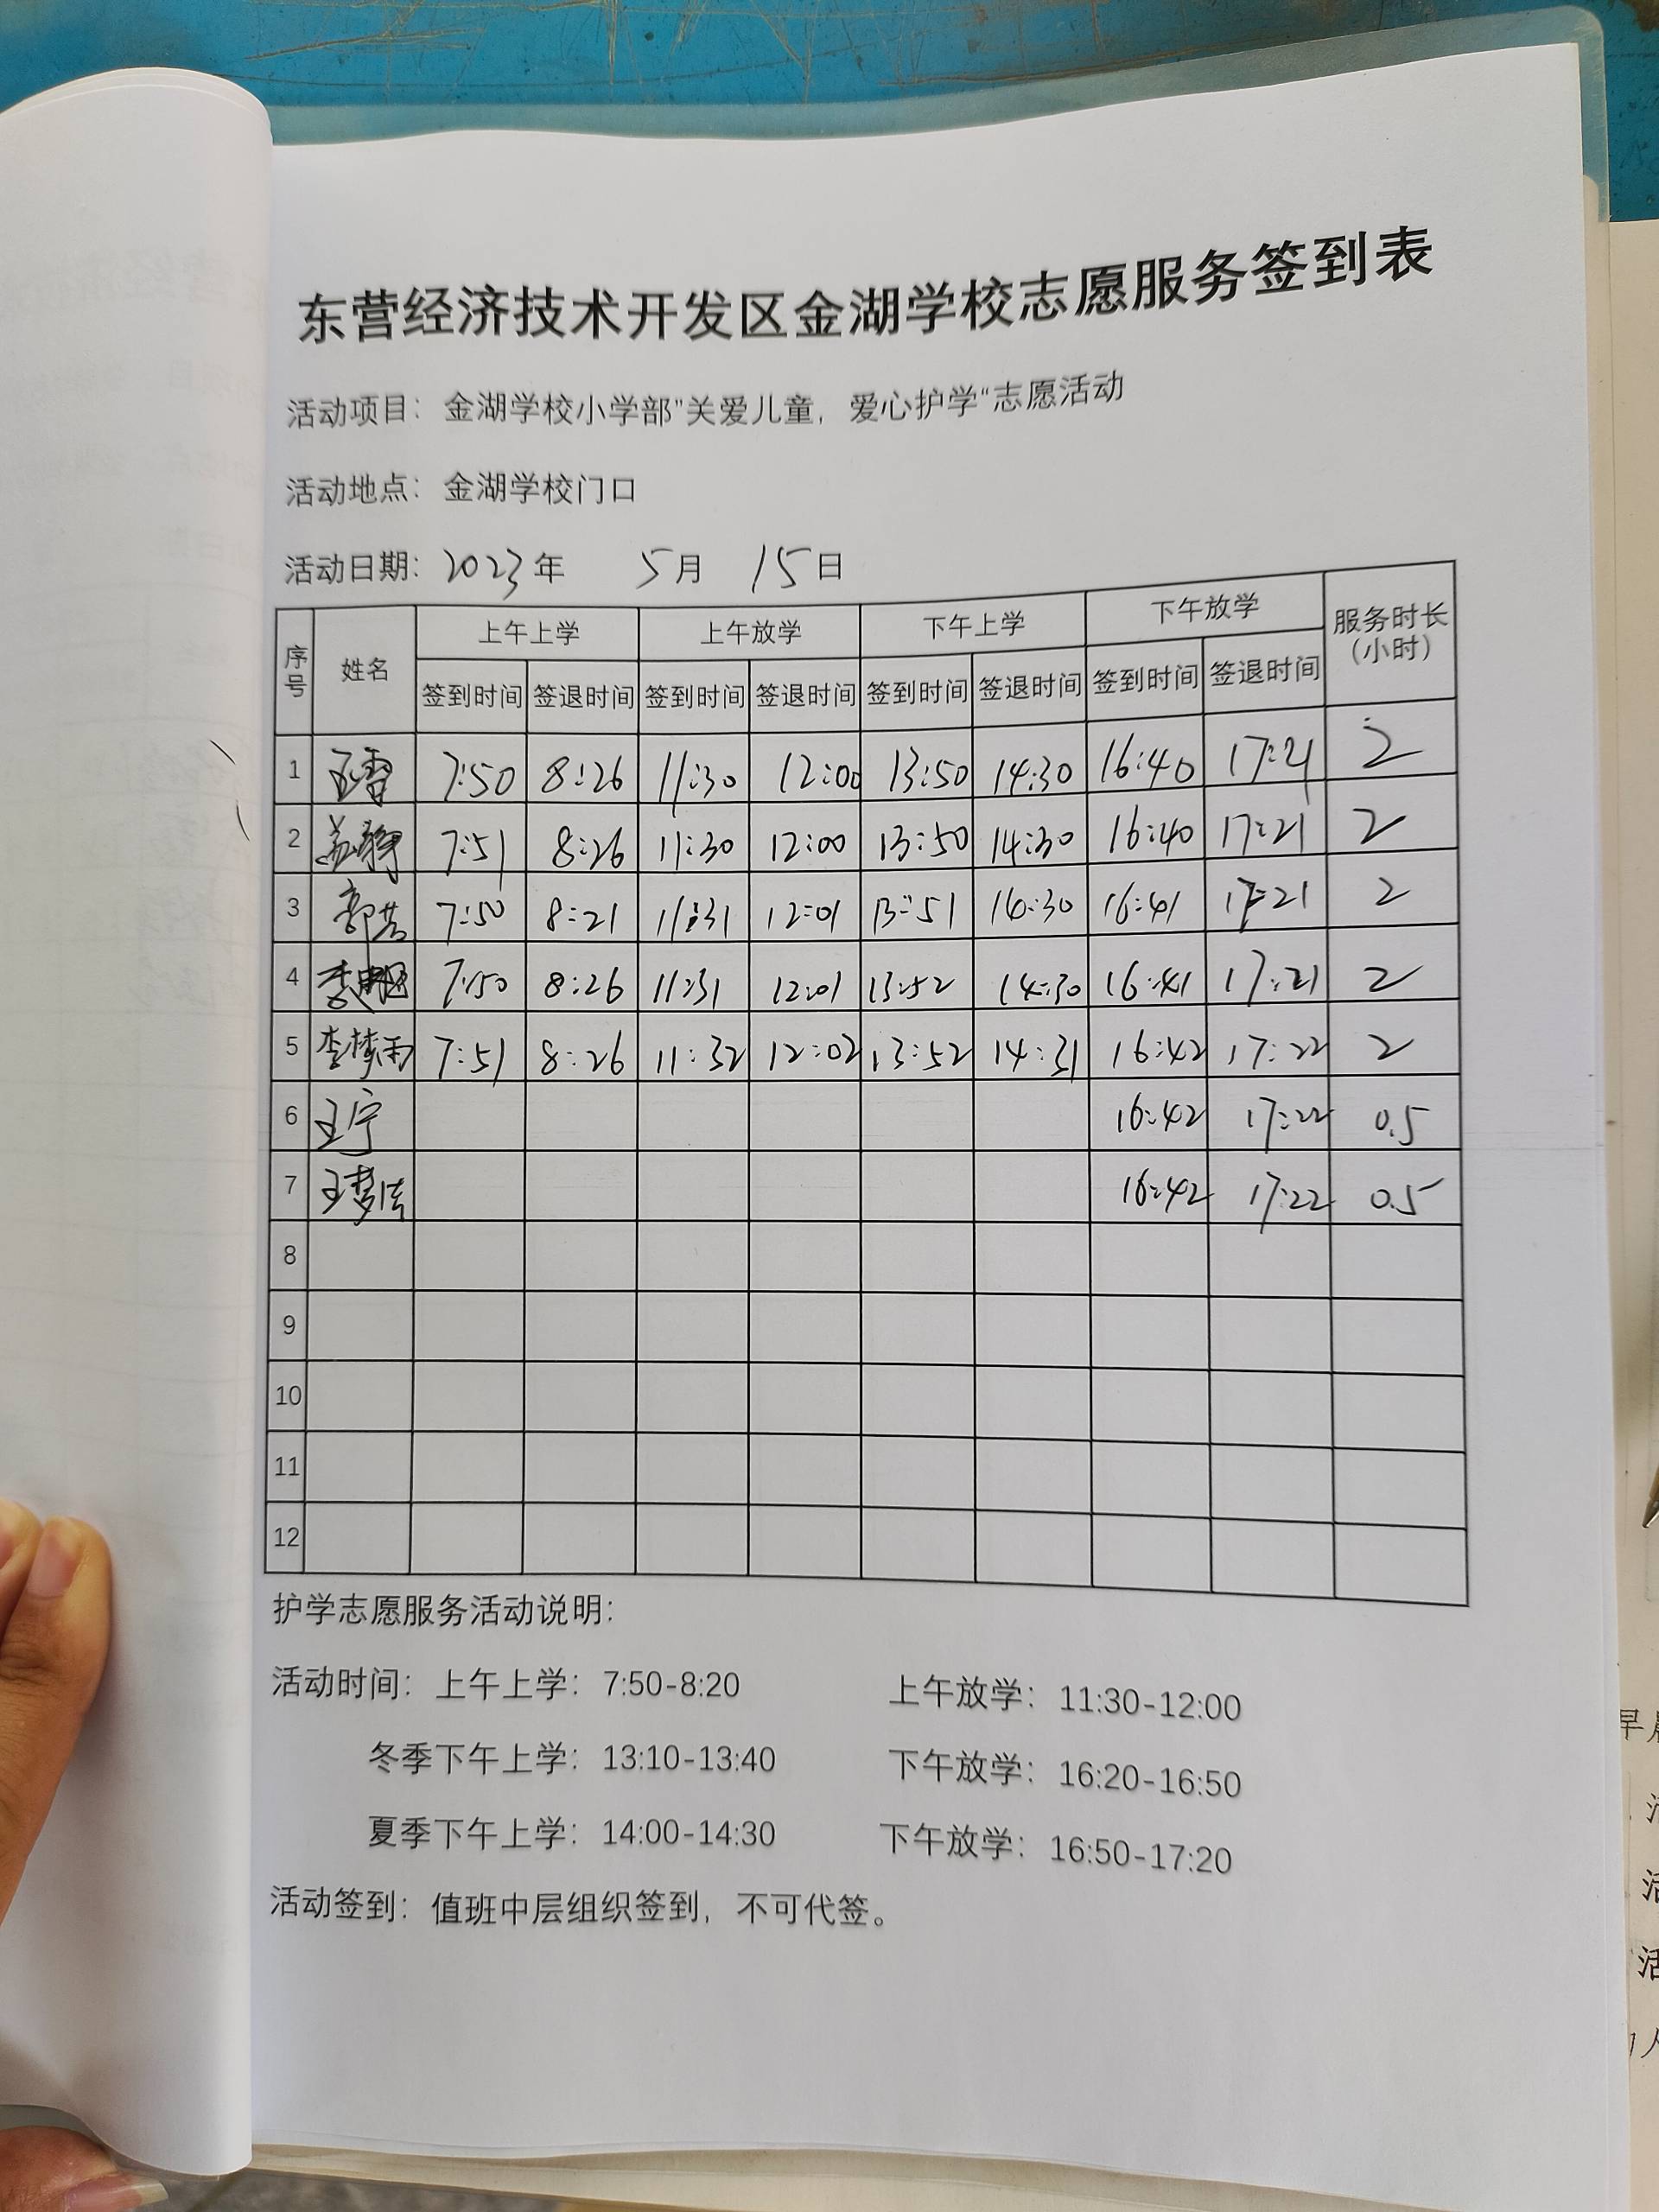 东营经济技术开发区金湖学校志愿服务签到表
活动项目：金湖学校小学部"关爱儿童，爱心护学"志愿活动
活动地点：金湖学校门口
活动日期：2023年 5月 15日
序号 姓名 上午上学 上午放学 下午上学 下午放学 服务时长（小时）
签到时间 签退时间 签到时间 签退时间 签到时间 签退时间 签到时间 签退时间
1 王雷 7:50 8:26 11:30 12:00 13:50 14:30 16:40 17:21 2
2 7:51 8:26 11:30 12:00 13:50 14:30 16:40 17:21 2
3 郭芸 7:50 8:21 11:31 12:01 13:51 14:30 16:41 17:21 2
4 7:50 8:26 11:31 12:01 13:52 14:30 16:41 17:21 2
5 李梦雨 7:51 8:26 11:32 12:02 13:52 14:31 16:42 17:22 2
6 王宁 16:42 17:22 0.5
7 王梦洁 16:42 17:22 0.5
8
9
10
11
12
护学志愿服务活动说明：
活动时间：上午上学：7:50-8:20 上午放学：11:30-12:00
冬季下午上学：13:10-13:40 下午放学：16:20-16:50
夏季下午上学：14:00-14:30 下午放学：16:50-17:20
活动签到：值班中层组织签到，不可代签。